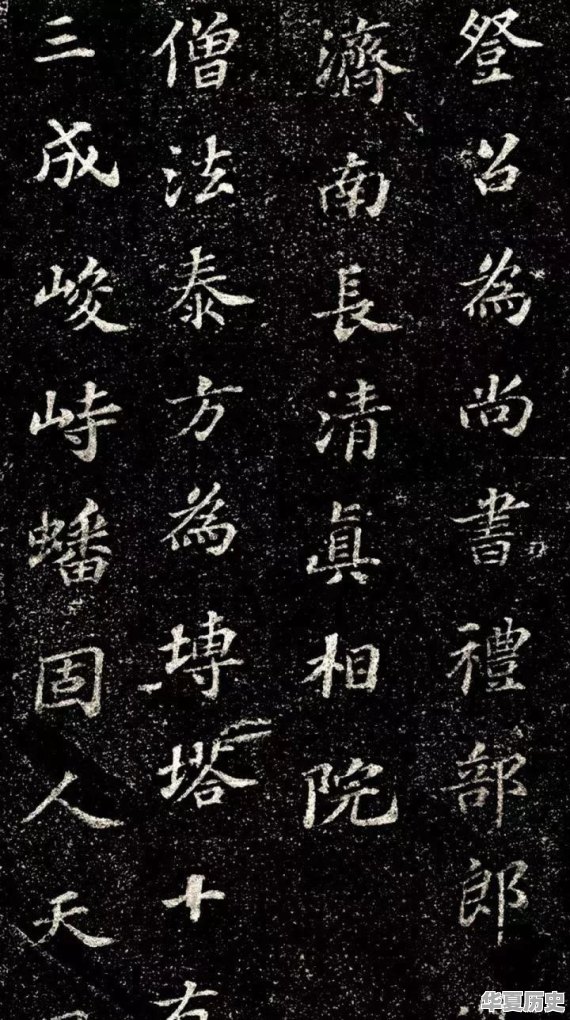 登召為尚書禮部郎
濟南長清眞相院
僧法泰方為塼塔十有
三成峻峙蟠固人天
华夏历史